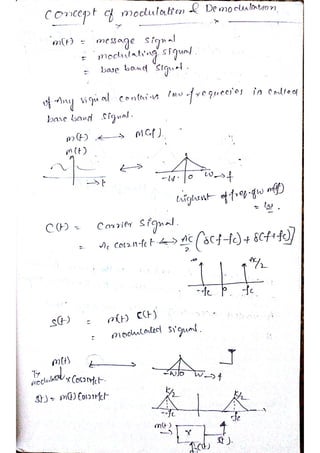 Concept of modulation & Demodulation
m(t) = message signal
= modulating signal.
= base band signal.
of Any signal contains low frequecies is called
base band signal.
m(t) ⟷ M(f)
m(t)
t
-W 0 W f
highest of freq. of m(t)
= W
C(t) = Carrier signal.
= Ac cos2πfct ⟷ Ac/2 [δ(f-fc) + δ(f+fc)]
Ac/2
-fc 0 fc
s(t) = m(t) C(t)
= modulated signal.
m(t) ⟷
-W 0 W f
modulated × cos2πfct
S(t) = m(t) cos2πfct
-fc fc
m(t) × s(t).